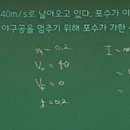 40m/s로 날아오고 있다. 포수가 이
야구공을 멈추기 위해 포수가 가한
m = 0.2
I = m
V₀ = 40
= 0
t = 0.2